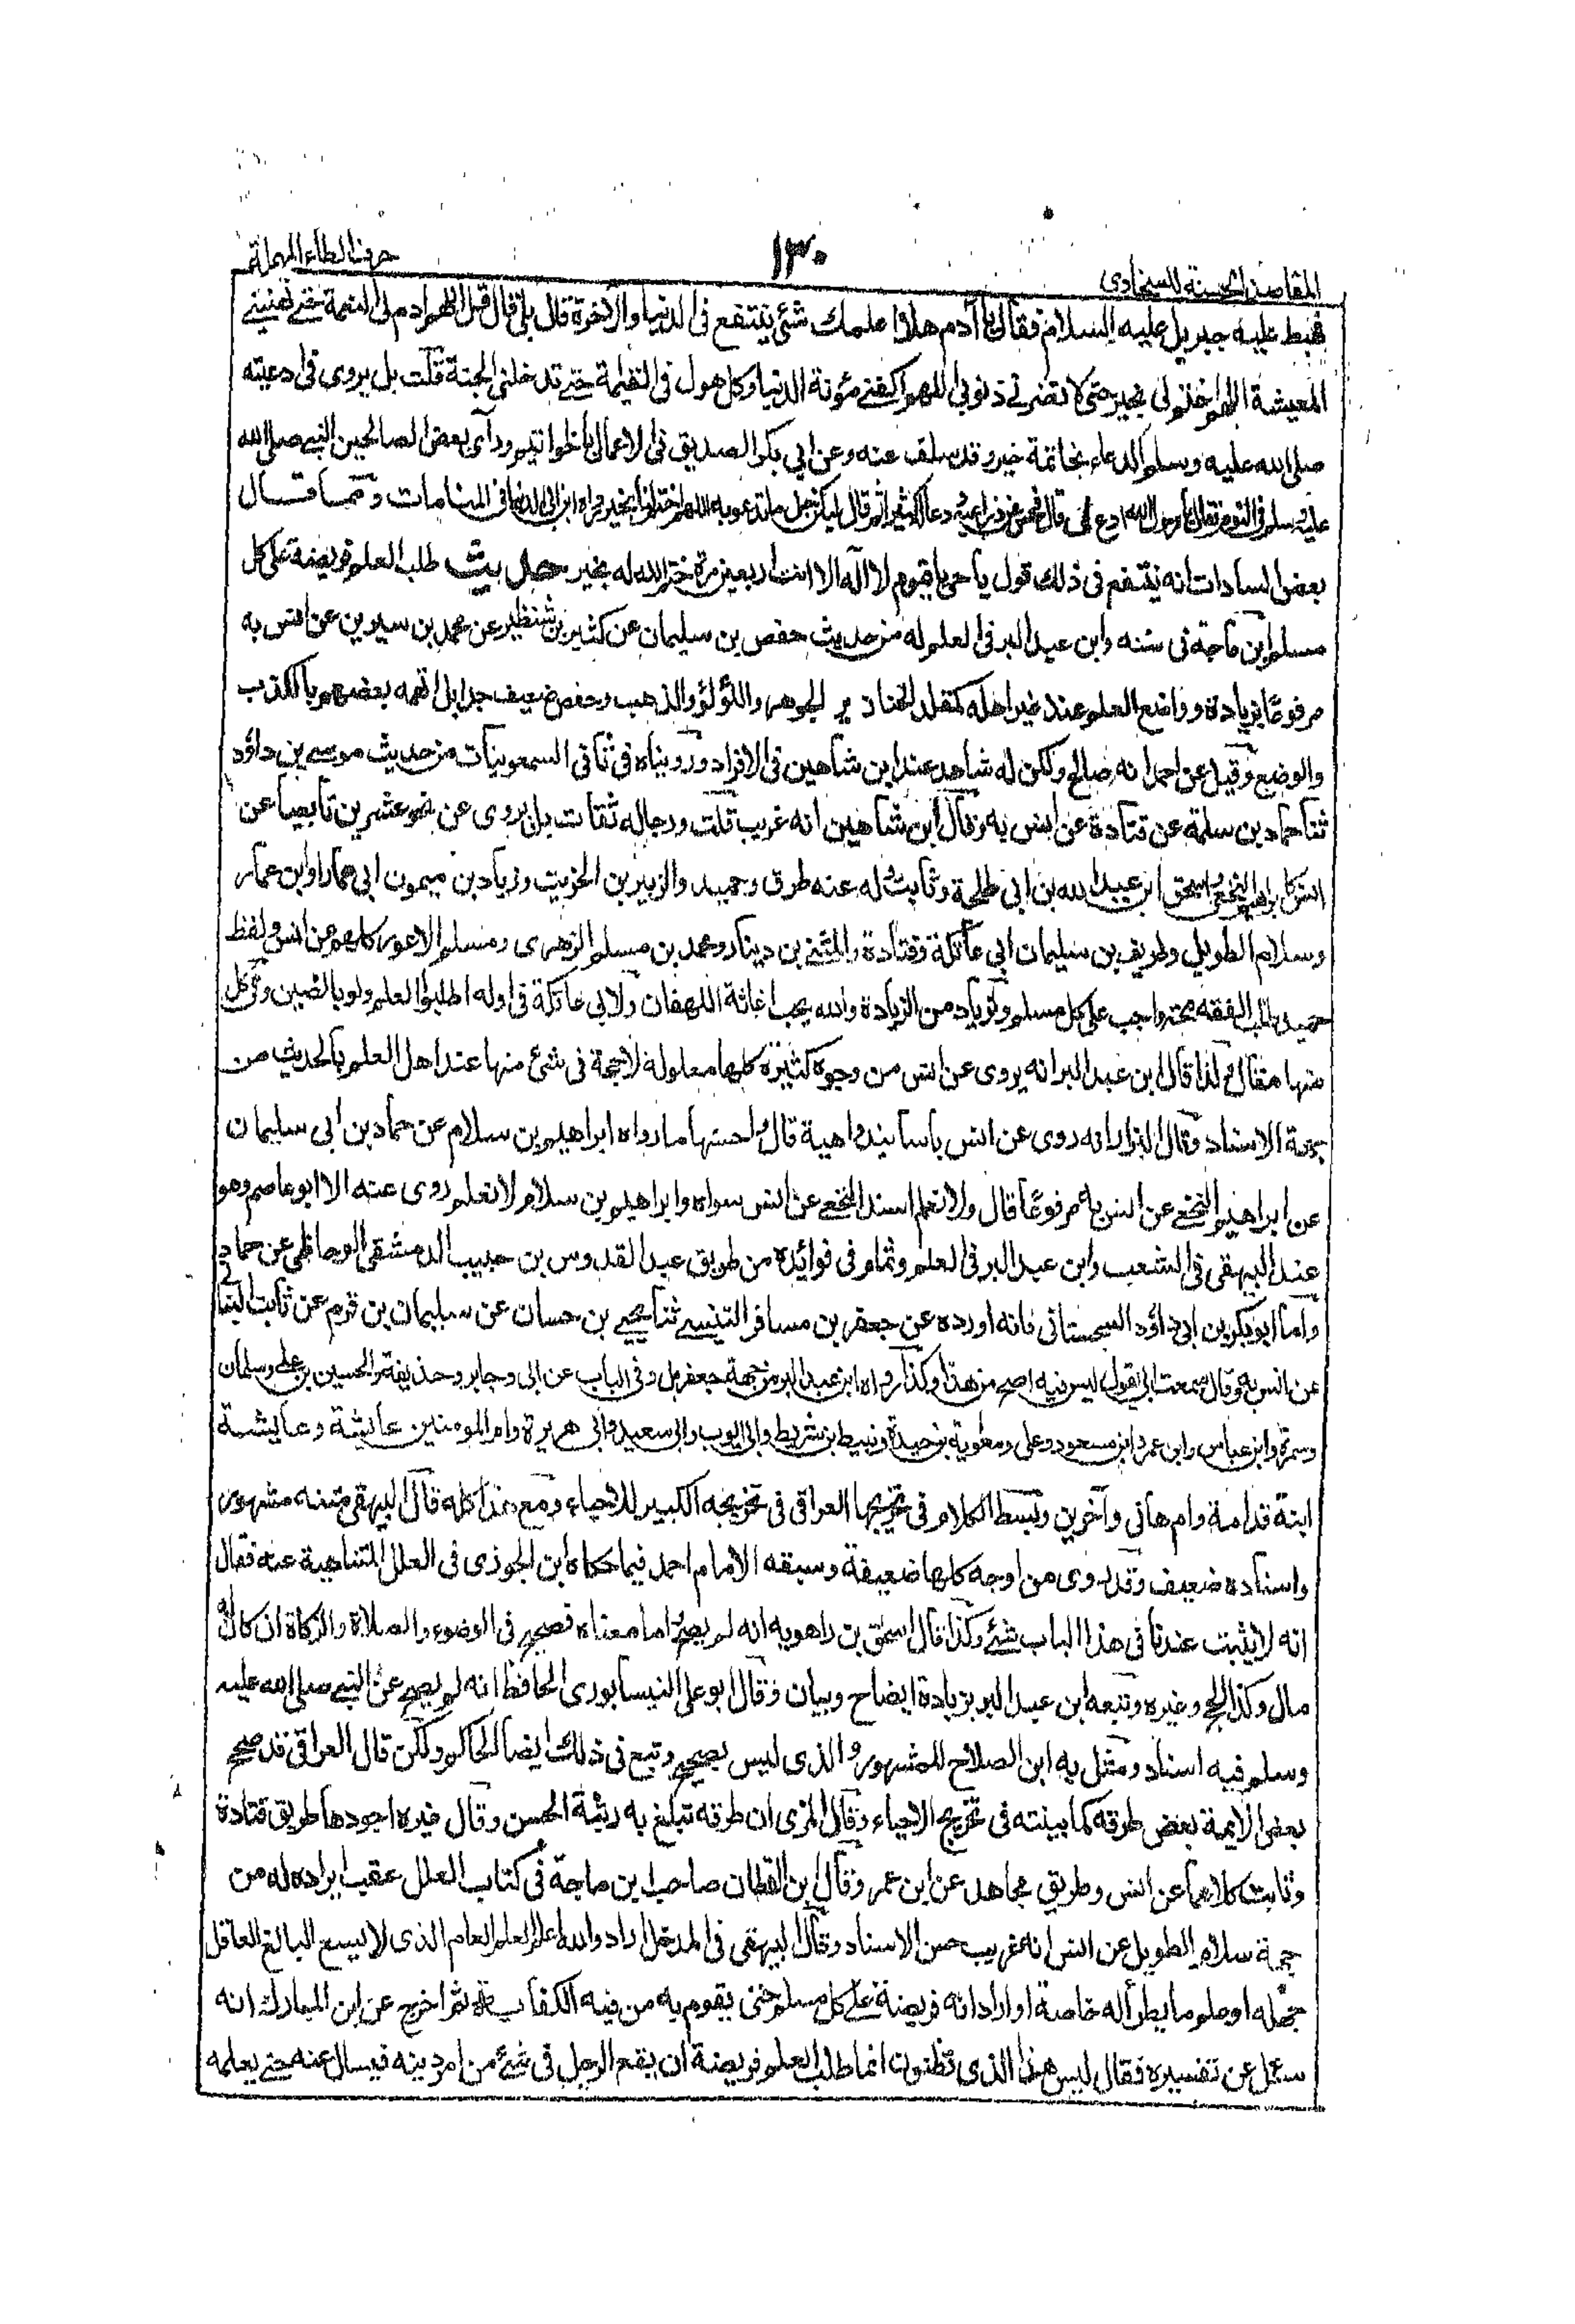 المقاصد الحسنة للسخاوى
١٣٠
حرف الطاء المهملة
فهبط عليه جبريل عليه السلام فقال يا آدم هلا اعلمك شئ ينتفع فى الدنيا والاخرة قال بلى قال قل اللهم ادم لى النعمة حتى تهنينى
المعيشة اللهم اختم لى بخير حتى لا تضرنى ذنوبى اللهم اكفنى مؤنة الدنيا وكل هول فى القيمة حتى تدخلنى الجنة قلت بل يروى فى ادعيته
صلى الله عليه وسلم الدعاء بخاتمة خير وقد سلف عنه وعن ابى بكر الصديق فى الاعمال بالخواتيم ورأى بعض الصالحين النبى صلى الله
عليه وسلم فى النوم فقال يا رسول الله ادع لى قال فحسر عن ذراعيه ودعا لى كثيرا ثم قال ليكن جل ما تدعو به اللهم اختم لنا بخير رواه ابن ابى الدنيا فى المنامات ومما قال
بعض السادات انه ينتفع فى ذلك قول يا حى يا قيوم لا اله الا انت اربعين مرة ختم الله له بخير حديث طلب العلم فريضة على كل
مسلم ابن ماجة فى سننه وابن عبد البر فى العلم له من حديث حفص بن سليمان عن كثير بن شنظير عن محمد بن سيرين عن انس به
مرفوعا بزيادة وواضع العلم عند غير اهله كمقلد الخنازير الجوهر واللؤلؤ والذهب وحفص ضعيف جدا بل اتهمه بعضهم بالكذب
والوضع وقيل عن احمد انه صالح ولكن له شاهد عند ابن شاهين فى الافراد ورويناه فى ثانى السمعونيات من حديث موسى بن داؤد
ثنا حماد بن سلمة عن قتادة عن انس به وقال ابن شاهين انه غريب قلت ورجاله ثقات بل يروى عن نحو عشرين تابعيا عن
انس كابراهيم النخعى واسحق ابن عبيد الله بن ابى طلحة وثابت وله عنه طرق وحميد والزبير بن الخريت وزياد بن ميمون ابى عمار او ابن عمار
وسلام الطويل وطريف بن سليمان ابى عاتكة وقتادة والمثنى بن دينار ومحمد بن مسلم الزهرى ومسلم الاعور كلهم عن انس ولفظ
حميد طلب الفقه محتم واجب على كل مسلم ولزياد من الزيادة والله يحب اغاثة اللهفان ولابى عاتكة فى اوله اطلبوا العلم ولو بالصين وفى كل
منها مقال ولذا قال ابن عبد البر انه يروى عن انس من وجوه كثيرة كلها معلولة لا حجة فى شئ منها عند اهل العلم بالحديث من
جهة الاسناد وقال البزار انه روى عن انس باسانيد واهية قال واحسنها ما رواه ابراهيم بن سلام عن حماد بن ابى سليمان
عن ابراهيم النخعى عن انس به مرفوعا قال ولا نعلم اسند النخعى عن انس سواه وابراهيم بن سلام لا نعلم روى عنه الا ابو عاصم وهو
عند البيهقى فى الشعب وابن عبد البر فى العلم وتمام فى فوائده من طريق عبد القدوس بن حبيب الدمشقى الوحاظى عن حماد
واما ابو بكر بن ابى داؤد السجستانى فانه اورده عن جعفر بن مسافر التنيسى ثنا يحيى بن حسان عن سليمان بن قرم عن ثابت البنانى
عن انس به وقال سمعت ابى يقول ليس فيه اصح من هذا وكذا رواه ابن عبد البر من جهة جعفر بل وفى الباب عن ابى وجابر وحذيفة والحسين بن على وسلمان
وسمرة وابن عباس وابن عمر وابن مسعود وعلى ومعوية بن حيدة ونبيط بن شريط وابى ايوب وابى سعيد وابى هريرة وام المومنين عائشة وعايشة
ابنة قدامة وام هانى وآخرين وبسط الكلام فى تخريجها العراقى فى تخريجه الكبير للاحياء ومع هذا كله قال البيهقى متنه مشهور
واسناده ضعيف وقد روى من اوجه كلها ضعيفة وسبقه الامام احمد فيما حكاه ابن الجوزى فى العلل المتناهية عنه فقال
انه لا يثبت عندنا فى هذا الباب شئ وكذا قال اسحق بن راهويه انه لم يصح اما معناه فصحيح فى الوضوء والصلاة والزكاة ان كان له
مال وكذا الحج وغيره وتبعه ابن عبد البر بزيادة ايضاح وبيان وقال ابو على النيسابورى الحافظ انه لم يصح عن النبى صلى الله عليه
وسلم فيه اسناد ومثل به ابن الصلاح للمشهور والذى ليس بصحيح وتبع فى ذلك ايضا الحاكم ولكن قال العراقى قد صحح
بعض الايمة بعض طرقه كما بينته فى تخريج الاحياء وقال المزى ان طرقه تبلغ به رتبة الحسن وقال غيره اجودها طريق قتادة
وثابت كلاهما عن انس وطريق مجاهد عن ابن عمر وقال ابن القطان صاحب ابن ماجة فى كتاب العلل عقيب ايراده له من
جهة سلام الطويل عن انس انه غريب حسن الاسناد وقال البيهقى فى المدخل اراد والله اعلم العلم العام الذى لا يسع البالغ العاقل
جهله او علم ما يطرأ له خاصة او اراد انه فريضة على كل مسلم حتى يقوم به من فيه الكفاية ثم اخرج عن ابن المبارك انه
سئل عن تفسيره فقال ليس هذا الذى تظنون انما طلب العلم فريضة ان يقع الرجل فى شئ من امر دينه فيسال عنه حتى يعلمه